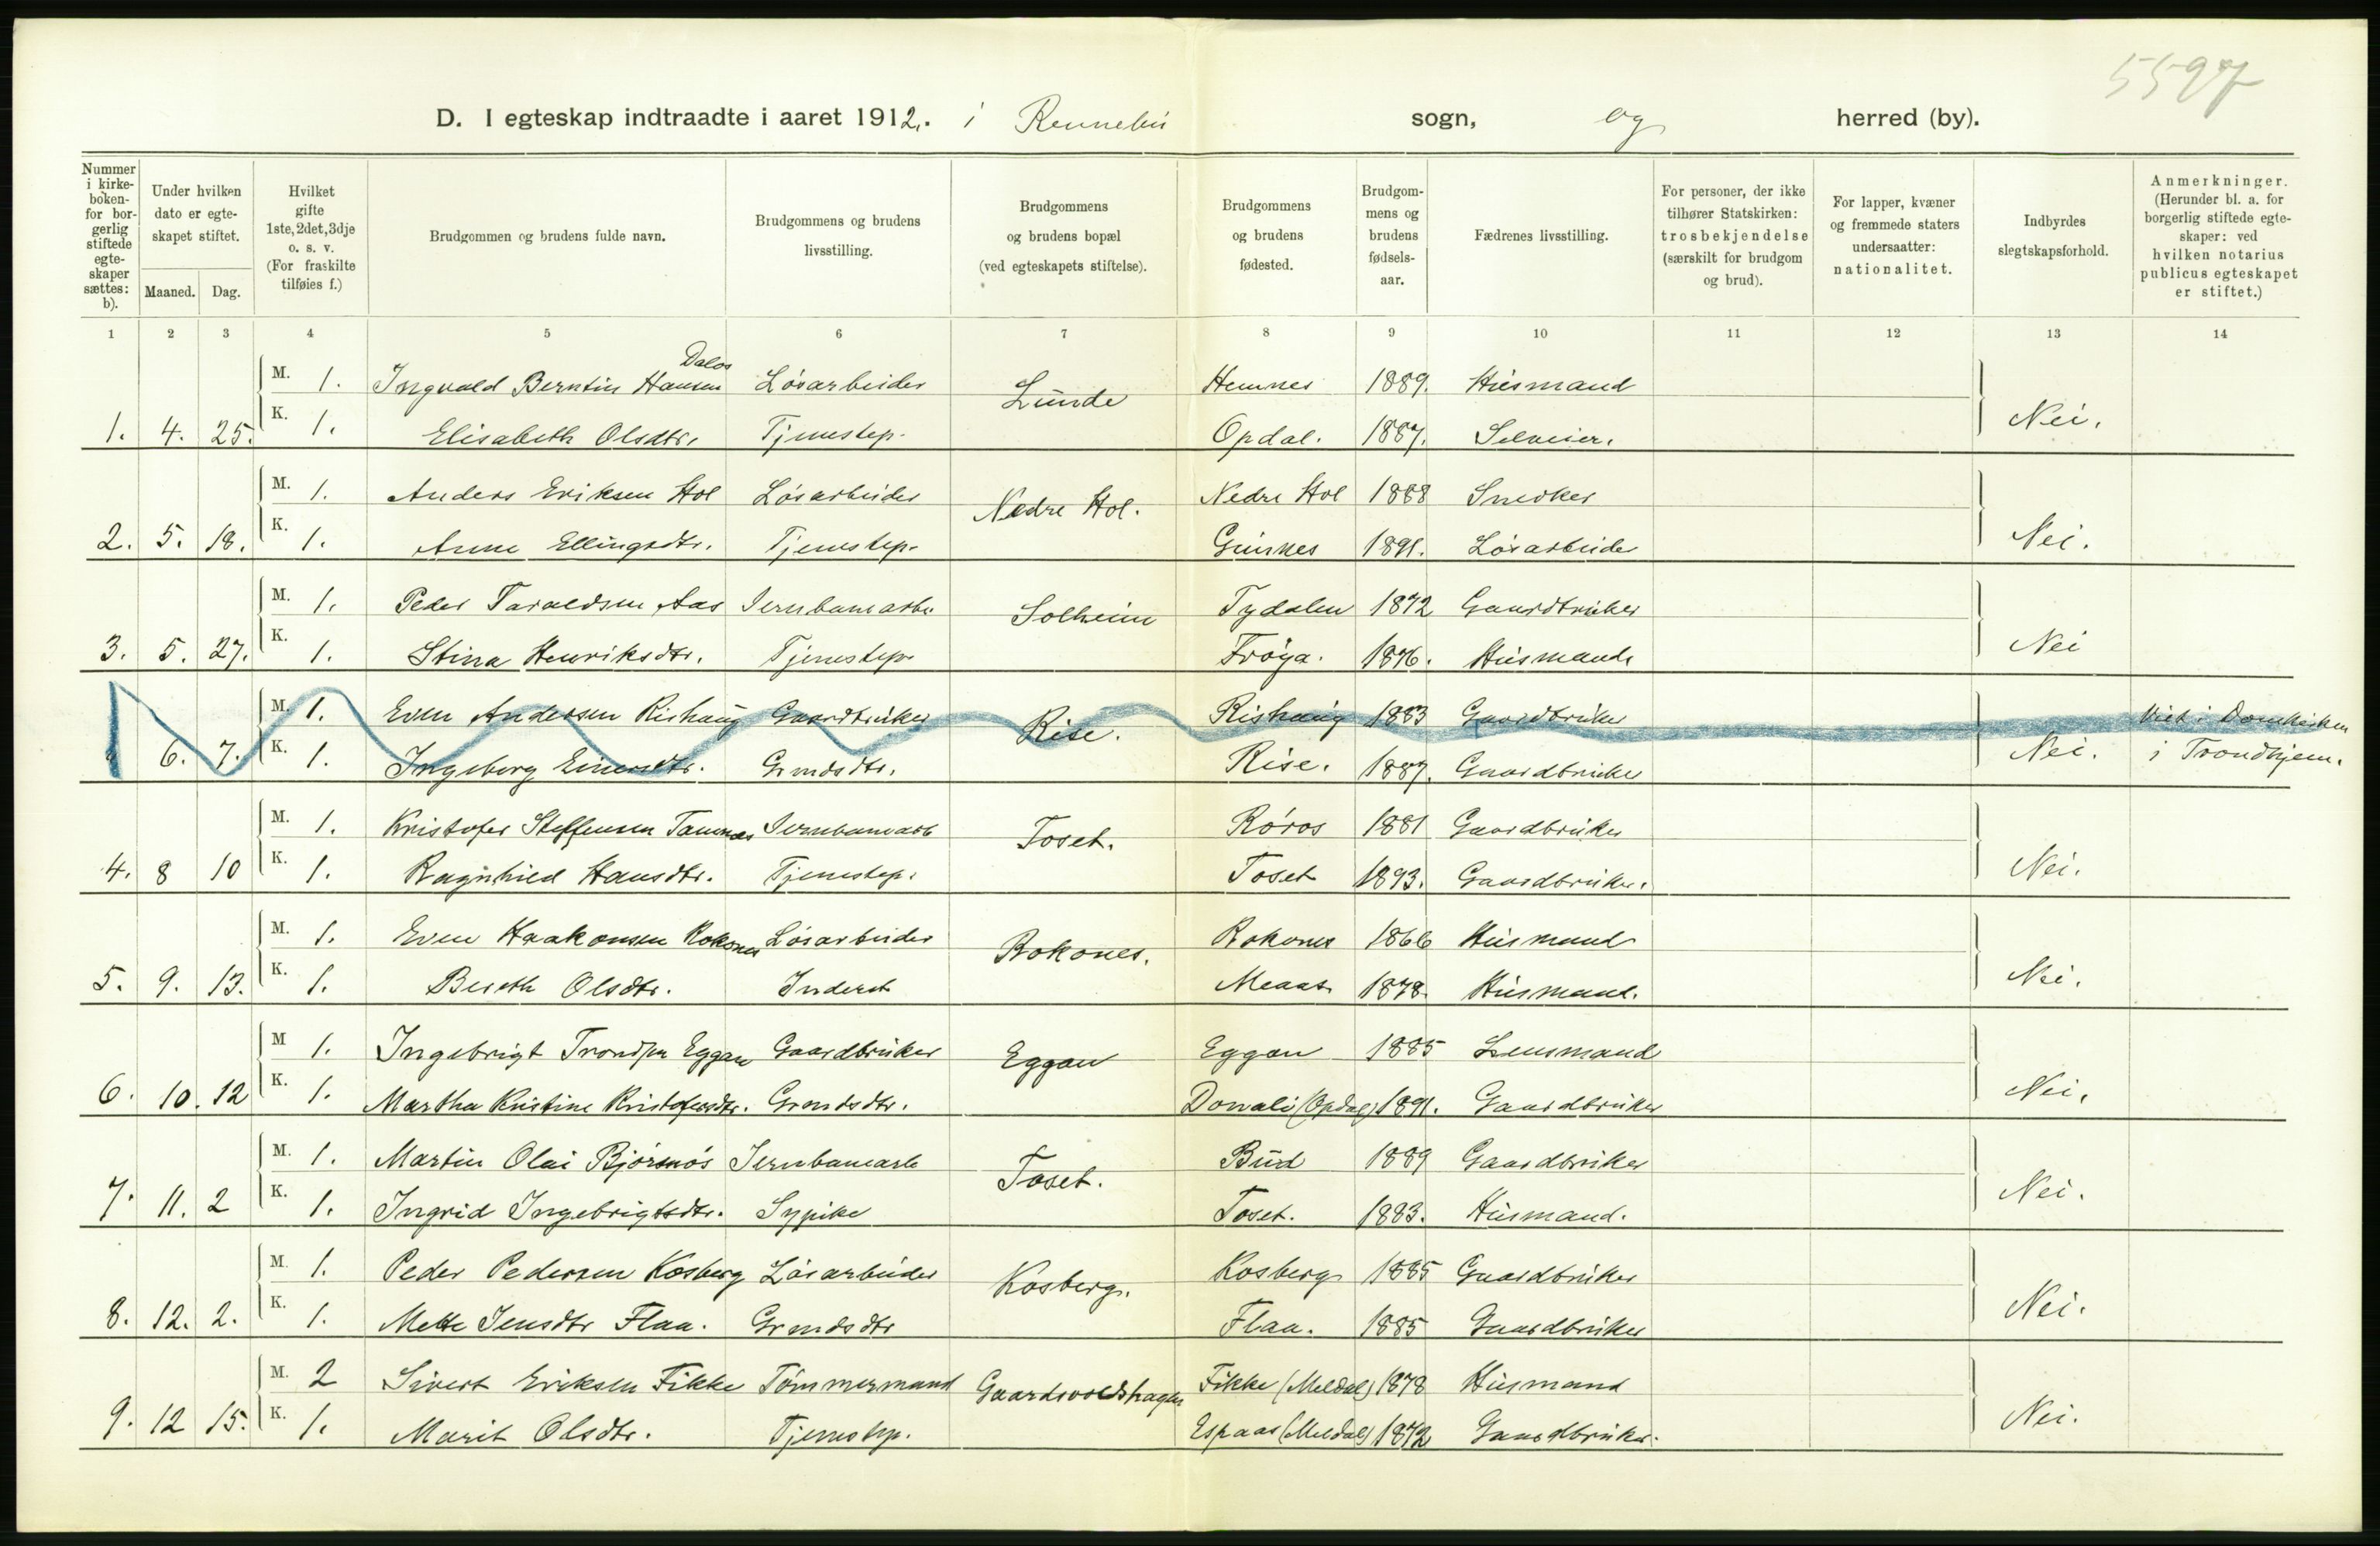 5597
D. I egteskap indtraadte i aaret 1912. i Rennebu sogn, og herred (by).
Nummer i kirke-boken- for bor-gerlig stiftede egte-skaper sættes: b). | Under hvilken dato er egte-skapet stiftet. Maaned. Dag. | Hvilket gifte 1ste, 2det, 3dje o. s. v. (For fraskilte tilføies f.) | Brudgommen og brudens fulde navn. | Brudgommens og brudens livsstilling. | Brudgommens og brudens bopæl (ved egteskapets stiftelse). | Brudgommens og brudens fødested. | Brudgom-mens og brudens fødsels-aar. | Fædrenes livsstilling. | For personer, der ikke tilhører Statskirken: trosbekjendelse (særskilt for brudgom og brud). | For lapper, kvæner og fremmede staters undersaatter: nationalitet. | Indbyrdes slegtskapsforhold. | Anmerkninger. (Herunder bl. a. for borgerlig stiftede egte-skaper: ved hvilken notarius publicus egteskapet er stiftet.)
1 2 3 4 5 6 7 8 9 10 11 12 13 14
Dalos
M. 1. Ingvald Berntin Hansen Løsarbeider Lunde Hemnes 1889. Husmand
1. 4. 25. K. 1. Elisabeth Olsdtr. Tjenestep. Opdal. 1887. Selveier. Nei.
M. 1. Anders Eriksen Hol Løsarbeider Nedre Hol. Nedre Hol 1888 Snedker
2. 5. 18. K. 1. Anne Ellingsdtr. Tjenestep. 1891. Løsarbeider Nei.
M. 1. Peder Taraldsen Aas Jernbanearbr Solheim Tydalen 1872 Gaardbruker
3. 5. 27. K. 1. Stina Henriksdtr. Tjenestep. Frøya. 1876. Husmand Nei
M. 1. Even Andersen Rishaug Gaardbruker Rise. Rishaug 1883 Gaardbruker Viet i Domkirken
6. 7. K. 1. Ingeborg Einarsdtr. Grmdsdtr. Rise. 1887. Gaardbruker Nei. i Trondhjem.
M. 1. Kristofer Steffensen Tamnes Jernbanearb Toset. Røros 1881 Gaardbruker
4. 8 10 K. 1. Ragnhild Hansdtr. Tjenestep. Toset 1893. Gaardbruker. Nei.
M. 1. Even Haakonsen Rokones Løsarbeider Rokones. Rokones 1866 Husmand
5. 9. 13. K. 1. Bereth Olsdtr. Inderst Meaas 1878. Husmand. Nei.
M 1. Ingebrigt Trondsen Eggan Gaardbruker Eggan Eggan 1885 Lensmand
6. 10. 12 K. 1. Martha Kristine Kristofersdtr. Grmdsdtr. Donali (Opdal) 1891. Gaardbruker Nei.
M. 1. Martin Olai Bjørsnøs Jernbanearb Toset. Bud 1889 Gaardbruker
7. 11. 2 K. 1. Ingrid Ingebrigtsdtr. Sypike Toset. 1883. Husmand. Nei.
M. 1. Peder Pedersen Kosberg Løsarbeider Kosberg. Kosberg 1885 Gaardbruker
8. 12. 2. K. 1. Mette Jensdtr Flaa. Grmdsdtr Flaa. 1885 Gaardbruker Nei.
M. 2 Sivert Eriksen Fikke Tømmermand Gaardsvoldshagen Fikke (Meldal) 1878 Husmand
9. 12 15. K. 1. Marit Olsdtr. Tjenestep. Espaas (Meldal) 1872 Gaardbruker. Nei.